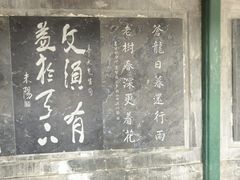 蒼龍日暮還行雨
老樹春深更着花
文須有
益於天下